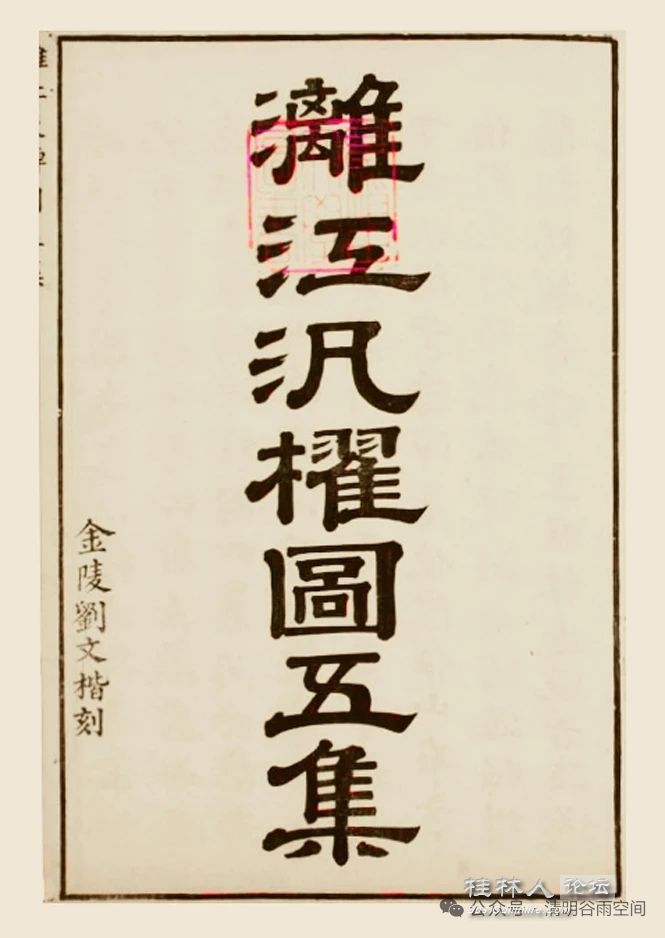 灕江汎櫂圖五集
金陵劉文楷刻
桂林人论坛
公众号 · 清明谷雨空间